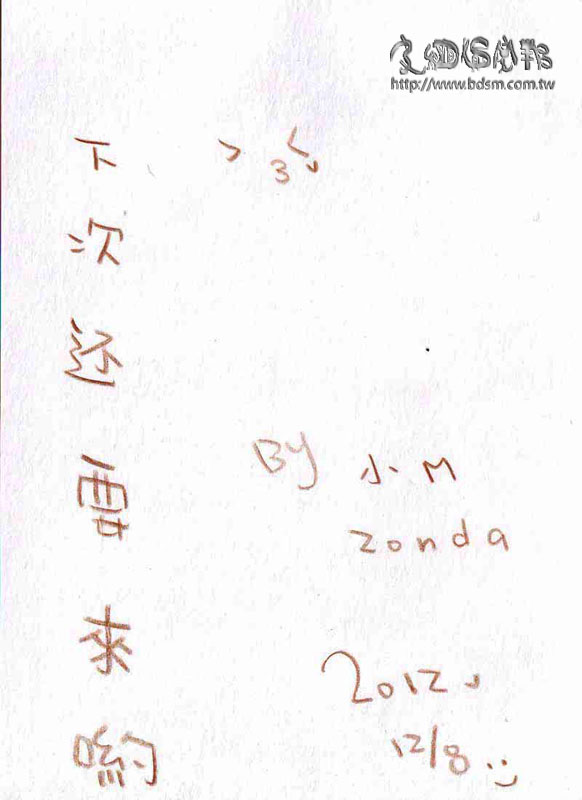 http://www.bdsm.com.tw
下次还要來喲
> 3 <
BY 小M
zonda
2012、
12/8 :)